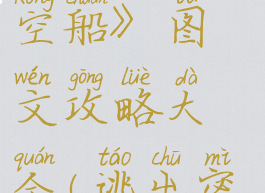 kōng chuán
空船》图
wén gōng lüè dà
文攻略大
quán táo chū mì
全（逃出密